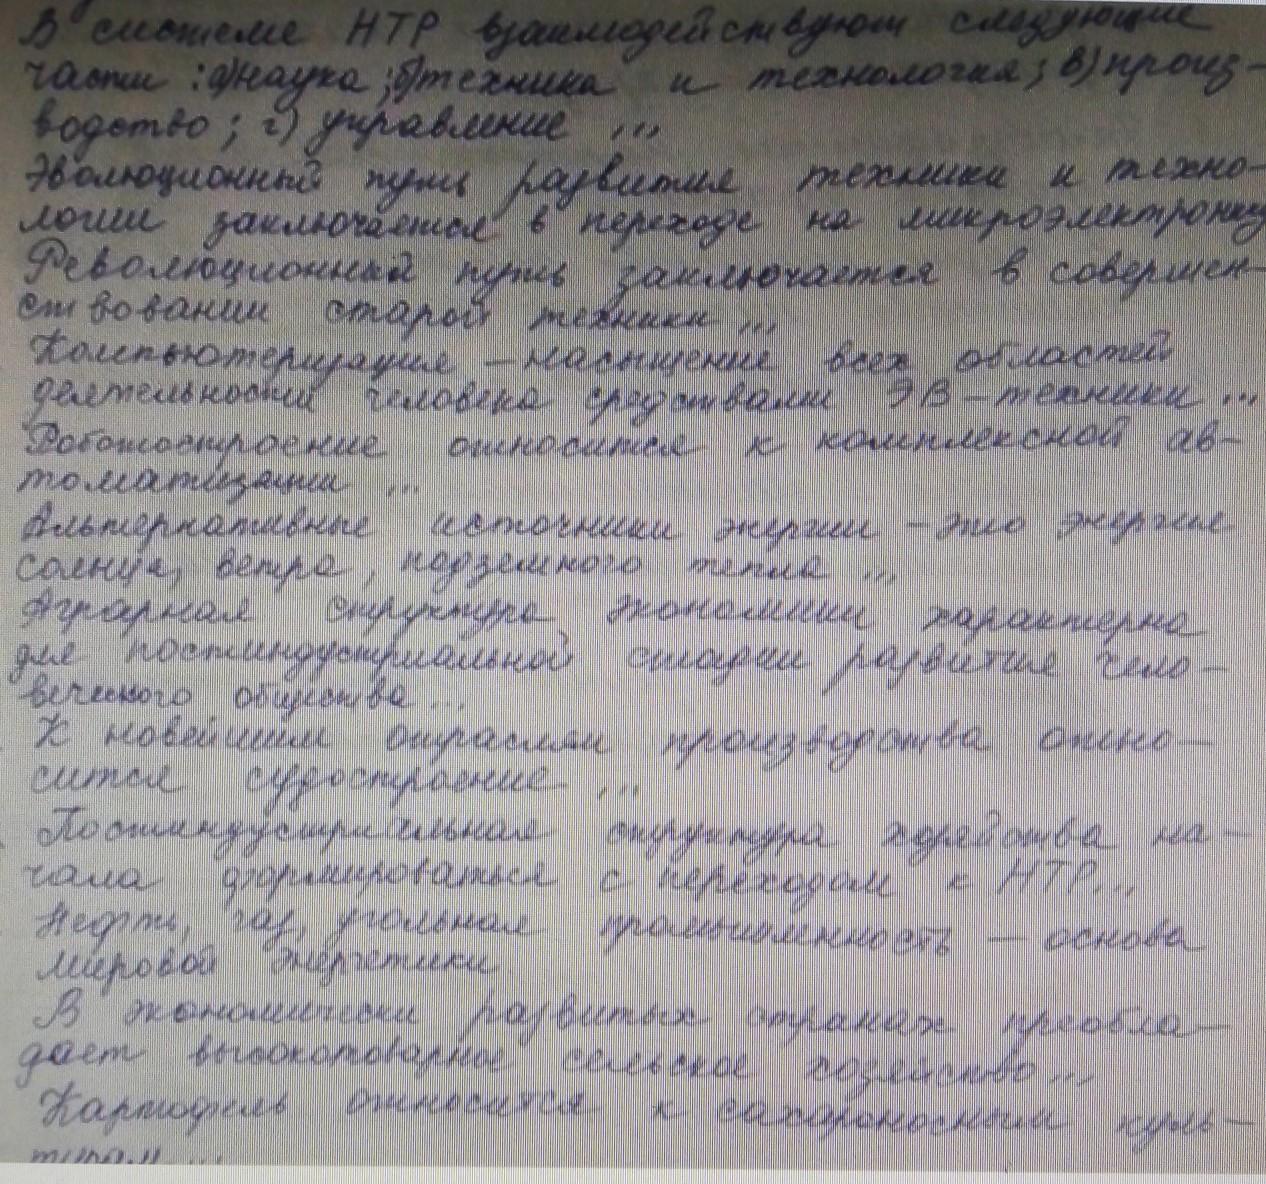 В системе НТР взаимодействуют следующие
части : а)наука ;б)техника и технология; в)произ-
водство; г) управление ...
Эволюционный путь развития техники и техно-
логии заключается в переходе на микроэлектронику
Революционный путь заключается в совершен-
ствовании старой техники ...
Компьютеризация – насыщение всех областей
деятельности человека средствами ЭВ-техники ...
Роботостроение относится к комплексной ав-
томатизации ...
Альтернативные источники энергии – это энергия
солнца, ветра, подземного тепла ...
Аграрная структура экономики характерна
для постиндустриальной стадии развития чело-
веческого общества ...
К новейшим отраслям производства отно-
сится судостроение ...
Постиндустриальная структура хозяйства на-
чала формироваться с переходом к НТР...
Нефть, газ, угольная промышленность – основа
мировой энергетики
В экономически развитых странах преобла-
дает высокотоварное сельское хозяйство ...
Картофель относится к сахароносным куль-
турам ...